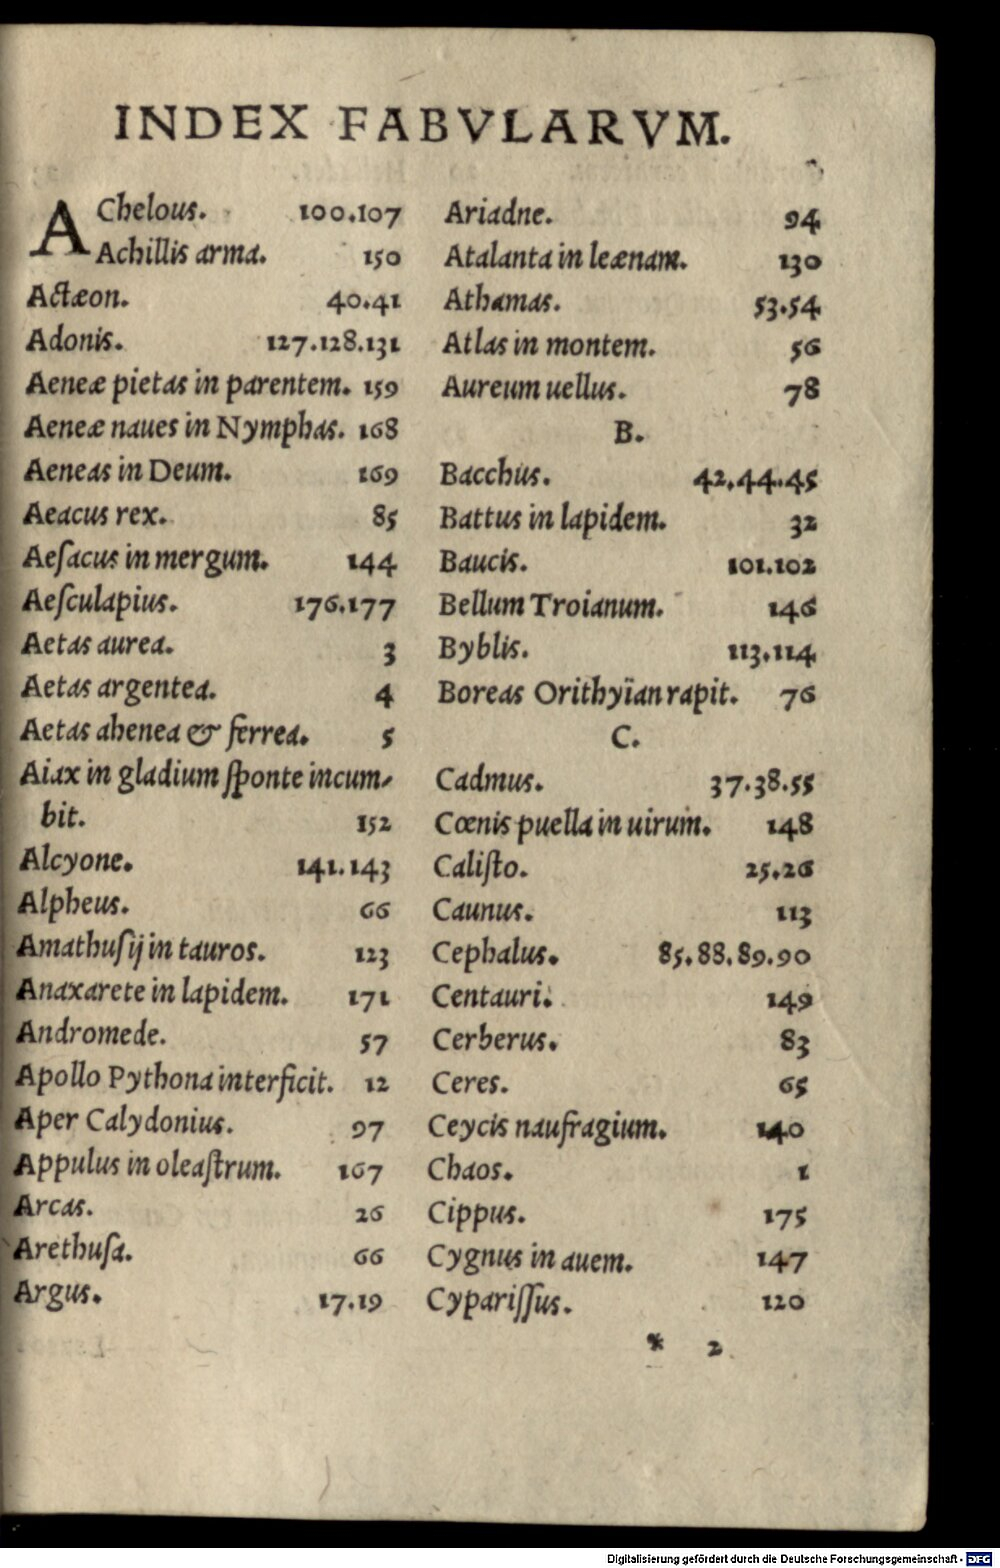 INDEX FABVLARVM.
AChelous. 100.107
Achillis arma. 150
Actæon. 40.41
Adonis. 127.128.131
Aeneæ pietas in parentem. 159
Aeneæ naues in Nymphas. 168
Aeneas in Deum. 169
Aeacus rex. 85
Aeſacus in mergum. 144
Aeſculapius. 176.177
Aetas aurea. 3
Aetas argentea. 4
Aetas ahenea & ferrea. 5
Aiax in gladium ſponte incum-
bit. 152
Alcyone. 141.143
Alpheus. 66
Amathuſij in tauros. 123
Anaxarete in lapidem. 171
Andromede. 57
Apollo Pythona interficit. 12
Aper Calydonius. 97
Appulus in oleaſtrum. 167
Arcas. 26
Arethuſa. 66
Argus. 17.19
Ariadne. 94
Atalanta in leænam. 130
Athamas. 53.54
Atlas in montem. 56
Aureum uellus. 78
B.
Bacchus. 42.44.45
Battus in lapidem. 32
Baucis. 101.102
Bellum Troianum. 146
Byblis. 113.114
Boreas Orithyïan rapit. 76
C.
Cadmus. 37.38.55
Cœnis puella in uirum. 148
Caliſto. 25.26
Caunus. 113
Cephalus. 85.88.89.90
Centauri. 149
Cerberus. 83
Ceres. 65
Ceycis naufragium. 140
Chaos. 1
Cippus. 175
Cygnus in auem. 147
Cypariſſus. 120
* 2
Digitalisierung gefördert durch die Deutsche Forschungsgemeinschaft - DFG